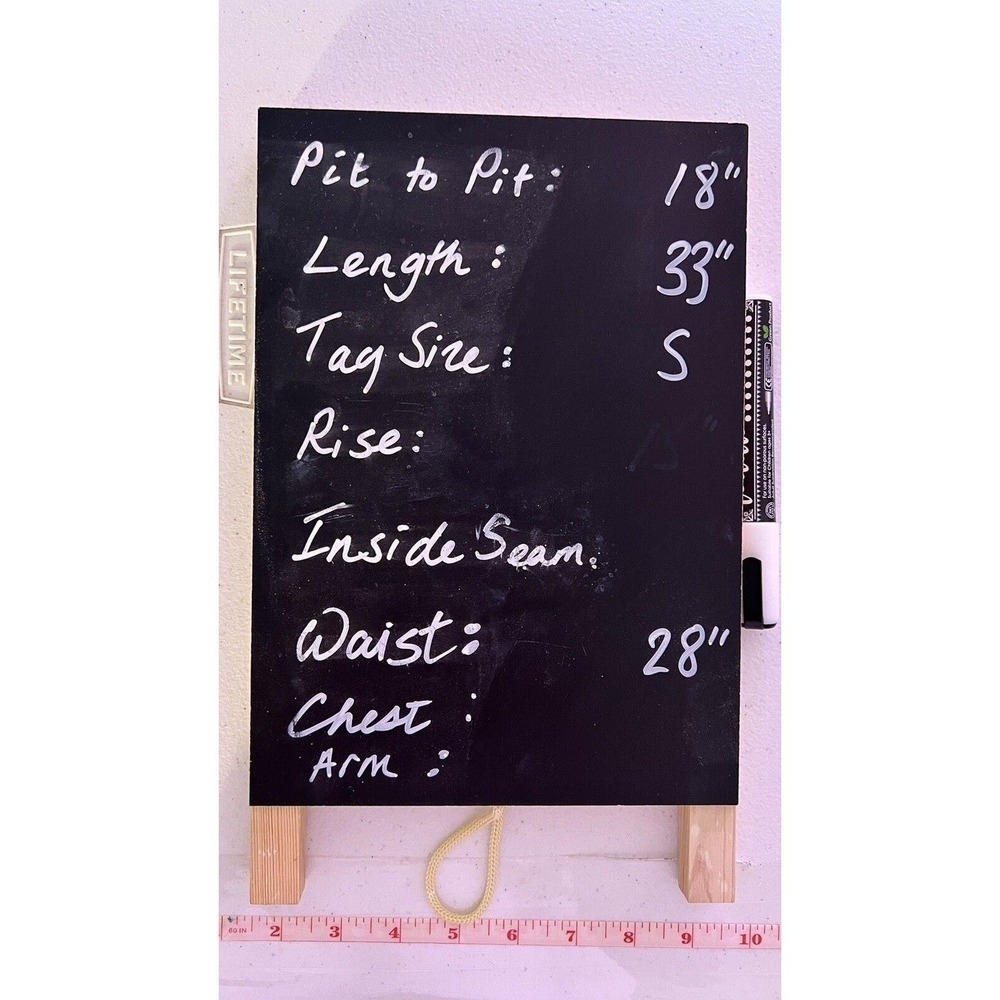 Pit to Pit: 18"
Length: 33"
Tag Size: S
Rise:
Inside Seam:
Waist: 28"
Chest :
Arm :
LIFETIME
For use on non-porous surfaces.
60 IN 2 3 4 5 6 7 8 9 10